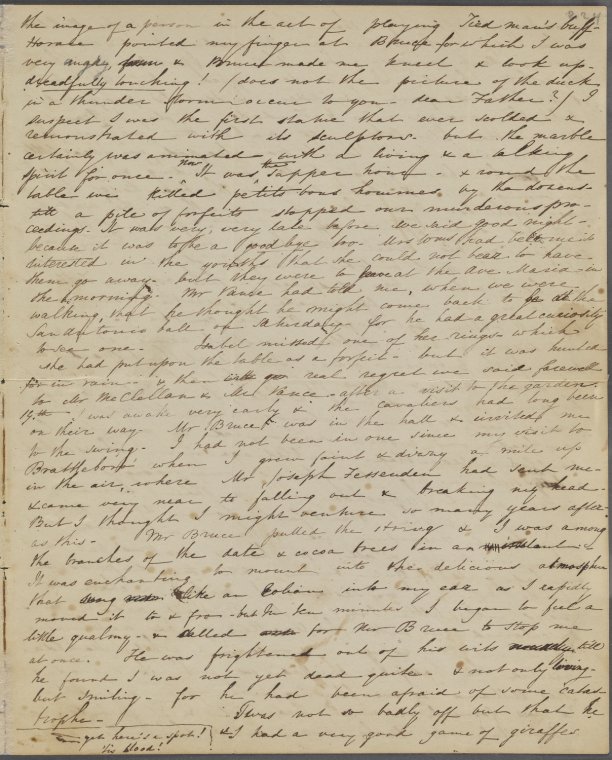 the image of a person in the act of playing Tied man's buff-
Horace pointed my finger at Bruce for which I was
very angry & Bruce made me kneel & look up-
dreadfully touching! (does not the picture of the duck
in a thunder storm occur to you - dear Father?) I
suspect I was the first statue that ever scolded &
remonstrated with its sculptors. but the marble
certainly was animated with a living & a talking
spirit for once. It was now the supper hour - & round the
table we killed petits bons hommes by the dozens-
till a pile of forfeits stopped our murderous pro-
ceedings. It was very, very late before we said good night -
because it was to be a good bye too. Mrs had become so
interested in the youths that she could not bear to have
them go away - but they were to leave at the Ave Maria in
the morning. Mr Vance had told me, when we were
walking, that he thought he might come back to the
San Antonio ball on Saturday - for he had a great curiosity
to see one. Isabel missed one of her rings which
she had put upon the table as a forfeit - but it was hunted
for in vain - & then with real regret we said farewell
to Mr McClellan & Mr Vance - after a visit to the garden.
13th I was awake very early & the cavaliers had long been
on their way. Mr Bruce was in the hall & invited me
to the swing. I had not been in one since my visit to
Brattleboro when I grew faint & dizzy a mile up
in the air, where Mr Joseph Fessenden had sent me -
& came very near to falling out & breaking my head -
But I thought I might venture so many years after-
as this. Mr Bruce pulled the string & I was among
the branches of the date & cocoa trees in an instant -
It was enchanting to mount into the delicious atmosphere
that sung like an Eolian into my ear as I rapidly
moved it to & fro - but in ten minutes I began to feel a
little qualmy - & called for Mr Bruce to stop me
at once. He was frightened out of his wits till
he found I was not yet dead quite - & not only living -
but smiling - for he had been afraid of some catas
trophe - Twas not so badly off but that he
& I had a very good game of giraffes
yet here's a spot!
his blood!